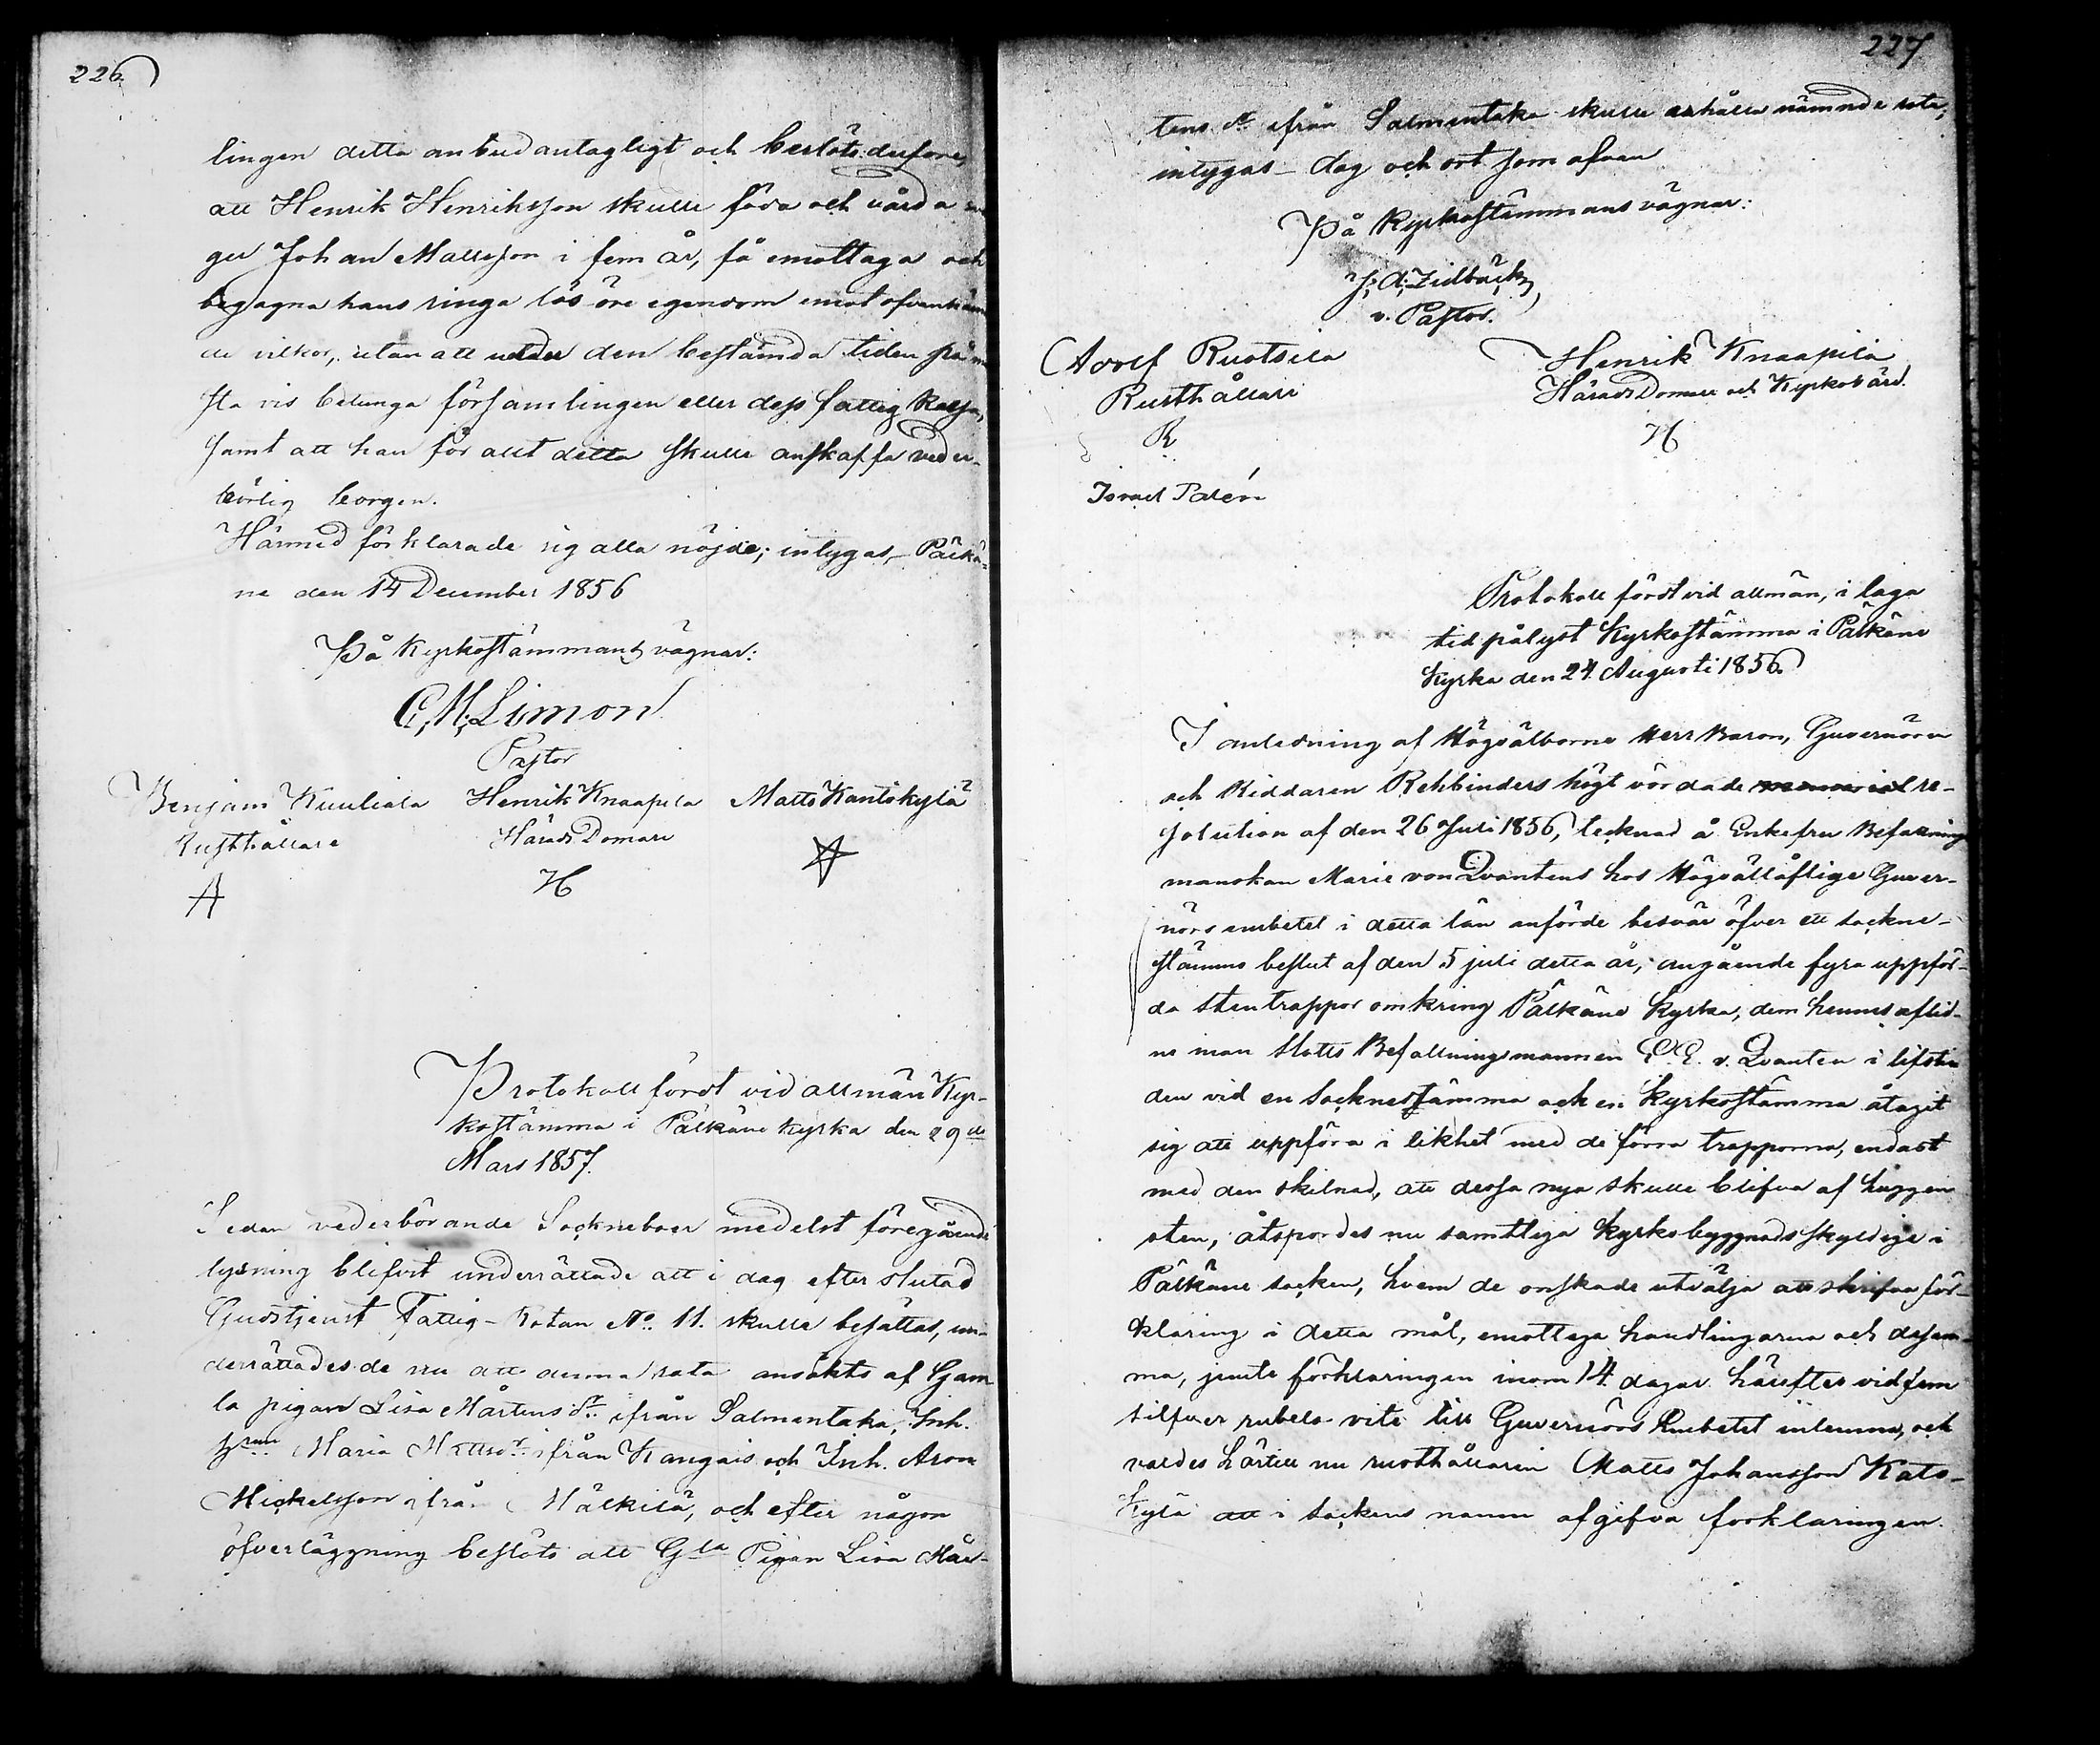 226.
lingen detta anbud antagligt och beslöts derföre,
att Henrik Henriksson skulle föda och vårda
ger Johan Mattsson i fem år, få emottaga och
begagna hans ringa lös öre egendom emot ofvannäm
de vilkor, utan att under den bestämda tiden på
sta vis betunga församlingen eller dess fattig kassa,
samt att han för allt detta skulle anskaffa veder-
börlig borgen.
Härmed förklarade sig alla nöjde; intygas, Pälkä-
ne den 14 December 1856
På Kyrkostämmans vägnar:
C. M. Limon
Pastor
Benjam Kuuliala Henrik Knaapila Matts Kantokylä
Rusthållare Härads Domare
A H
Protokoll fördt vid allmän Kyr-
kostämma i Pälkäne kyrka den 29de
Mars 1857.
Sedan vederbörande Sockneboer medelst föregående
lysning blifvit underrättade att i dag efter slutad
Gudstjenst Fattig-Rotan No. 11. skulle besättas, un-
derrättades de nu att denna rota ansökts af Gam
la pigan Lisa Mårtens dr. ifrån Salmentaka, Inh.
Maria Mattsdr. ifrån Kangais och Inh. Aron
Mickelsson ifrån Mälkilä, och efter någon
öfverläggning beslöts att Gla Pigan Lisa Mår-
227.
tens dr. ifrån Salmentaka skulle erhålla nämnde rota,
intygas — dag och ort som ofvan
På Kyrkostämmans vägnar:
J. A. Zidbäck,
v. Pastor.
Adolf Ruotsila Henrik Knaapila
Rusthållare Härads Domare och Kyrkovärd.
R H
Israel Palén
Protokoll fördt vid allmän, i laga
tid pålyst Kyrkostämma i Pälkäne
Kyrka den 24. Augusti 1856.
I anledning af Högvälborne Herr Baron, Guvernören
och Riddaren Rehbinders högt vördade memorial re-
solution af den 26 Juli 1856, tecknad å Enkefru Befallnings
manskan Marie von Qvantens hos Högvällåflige Guver-
nörs embetet i detta län anförde besvär öfver ett sockne-
stämmo beslut af den 5 juli detta år, angående fyra uppför-
da stentrappor omkring Pälkäne Kyrka, dem hennes aflid-
ne man Slotts Befallningsmannen C. E. v. Qvanten i lifsti
den vid en Socknestämma och en Kyrkostämma åtagit
sig att uppföra i likhet med de förra trapporna, endast
med den skilnad, att dessa nya skulle blifva af huggen
sten, åtspordes nu samtliga Kyrkobyggnads skyldige i
Pälkäne socken, hvem de önskade utvälja att skrifva för-
klaring i detta mål, emottaga handlingarna och desam-
ma, jemte förklaringen inom 14. dagar härefter vid fem
silfver rubels vite till Guvernörs Embetet inlemna, och
valdes härtill nu rusthållaren Matts Johansson Kato-
kylä att i sockens namn afgifva förklaringen.